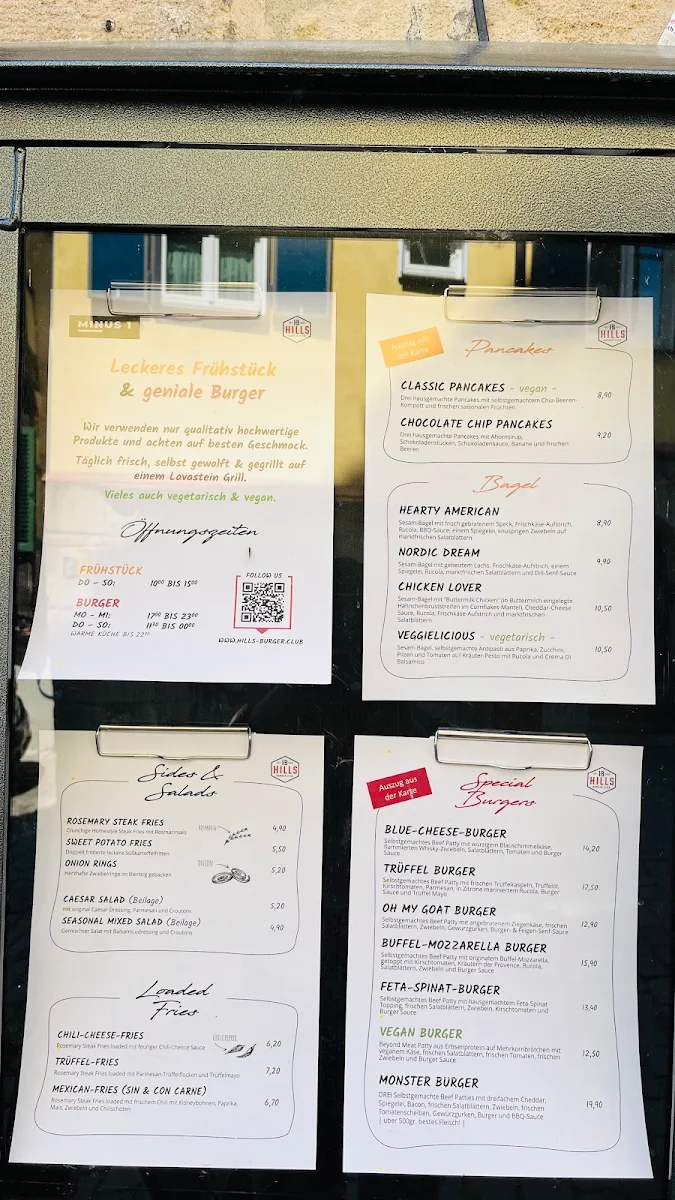 MINUS 1
18
HILLS
Leckeres Frühstück
& geniale Burger
Wir verwenden nur qualitativ hochwertige
Produkte und achten auf besten Geschmack.
Täglich frisch, selbst gewolft & gegrillt auf
einem Lavastein Grill.
Vieles auch vegetarisch & vegan.
Öffnungszeiten
FRÜHSTÜCK
DO – SO: 10⁰⁰ BIS 15⁰⁰
BURGER
MO – MI: 17⁰⁰ BIS 23⁰⁰
DO – SO: 11³⁰ BIS 00⁰⁰
WARME KÜCHE BIS 22⁰⁰
FOLLOW US
WWW.HILLS-BURGER.CLUB
Auszug aus
der Karte
Pancakes
18
HILLS
CLASSIC PANCAKES - vegan - 8,90
Drei hausgemachte Pancakes mit selbstgemachtem Chia-Beeren-
Kompott und frischen saisonalen Früchten
CHOCOLATE CHIP PANCAKES 9,20
Drei hausgemachte Pancakes mit Ahornsirup,
Schokoladenstücken, Schokoladensauce, Banane und frischen
Beeren
Bagel
HEARTY AMERICAN 8,90
Sesam-Bagel mit frisch gebratenem Speck, Frischkäse-Aufstrich,
Rucola, BBQ-Sauce, einem Spiegelei, knusprigen Zwiebeln auf
marktfrischen Salatblättern
NORDIC DREAM 9,90
Sesam-Bagel mit gebeiztem Lachs, Frischkäse-Aufstrich, einem
Spiegelei, Rucola, marktfrischen Salatblättern und Dill-Senf-Sauce
CHICKEN LOVER 10,50
Sesam-Bagel mit "Buttermilk Chicken" (in Buttermilch eingelegte
Hähnchenbruststreifen im Cornflakes-Mantel), Cheddar-Cheese
Sauce, Rucola, Frischkäse-Aufstrich und marktfrischen
Salatblättern
VEGGIELICIOUS - vegetarisch - 10,50
Sesam-Bagel, selbstgemachte Antipasti aus Paprika, Zucchini,
Pilzen und Tomaten auf Kräuter-Pesto mit Rucola und Crema Di
Balsamico
Sides &
Salads
18
HILLS
ROSEMARY STEAK FRIES 4,90
Crunchige Homestyle Steak Fries mit Rosmarinsalz
SWEET POTATO FRIES 5,50
Doppelt frittierte leckere Süßkartoffelfritten
ONION RINGS 5,20
Herzhafte Zwiebelringe im Bierteig gebacken
ONION
CAESAR SALAD (Beilage) 5,20
mit original Caesar Dressing, Parmesan und Croutons
SEASONAL MIXED SALAD (Beilage) 4,90
Gemischter Salat mit Balsamicodressing und Croutons
Loaded
Fries
CHILI-CHEESE-FRIES 6,20
Rosemary Steak Fries loaded mit feuriger Chili-Cheese Sauce
TRÜFFEL-FRIES 7,20
Rosemary Steak Fries loaded mit Parmesan-Trüffelflocken und Trüffelmayo
MEXICAN-FRIES (SIN & CON CARNE) 6,70
Rosemary Steak Fries loaded mit frischem Chili mit Kidneybohnen, Paprika,
Mais, Zwiebeln und Chilischoten
Auszug aus
der Karte
Special
Burgers
18
HILLS
BLUE-CHEESE-BURGER 14,20
Selbstgemachtes Beef Patty mit würzigem Blauschimmelkäse,
flammierten Whisky-Zwiebeln, Salatblättern, Tomaten und Burger
Sauce
TRÜFFEL BURGER 17,50
Selbstgemachtes Beef Patty mit frischen Trüffelraspeln, Trüffelöl,
Kirschtomaten, Parmesan, in Zitrone mariniertem Rucola, Burger
Sauce und Trüffel Mayo
OH MY GOAT BURGER 12,90
Selbstgemachtes Beef Patty mit angebratenem Ziegenkäse, frischen
Salatblättern, Zwiebeln, Gewürzgurken, Burger- & Feigen-Senf-Sauce
BUFFEL-MOZZARELLA BURGER 15,90
Selbstgemachtes Beef Patty mit originalem Büffel-Mozzarella,
getoppt mit Kirschtomaten, Kräutern der Provence, Rucola,
Salatblättern, Zwiebeln und Burger Sauce
FETA-SPINAT-BURGER 13,40
Selbstgemachtes Beef Patty mit hausgemachtem Feta-Spinat
Topping, frischen Salatblättern, Zwiebeln, Kirschtomaten und
Burger Sauce
VEGAN BURGER 12,50
Beyond Meat Patty aus Erbsenprotein auf Mehrkornbrötchen mit
veganem Käse, frischen Salatblättern, frischen Tomaten, frischen
Zwiebeln und Burger Sauce
MONSTER BURGER 19,90
DREI Selbstgemachte Beef Patties mit dreifachem Cheddar,
Spiegelei, Bacon, frischen Salatblättern, Zwiebeln, frischen
Tomatenscheiben, Gewürzgurken, Burger und BBQ-Sauce
| über 500gr. bestes Fleisch! |